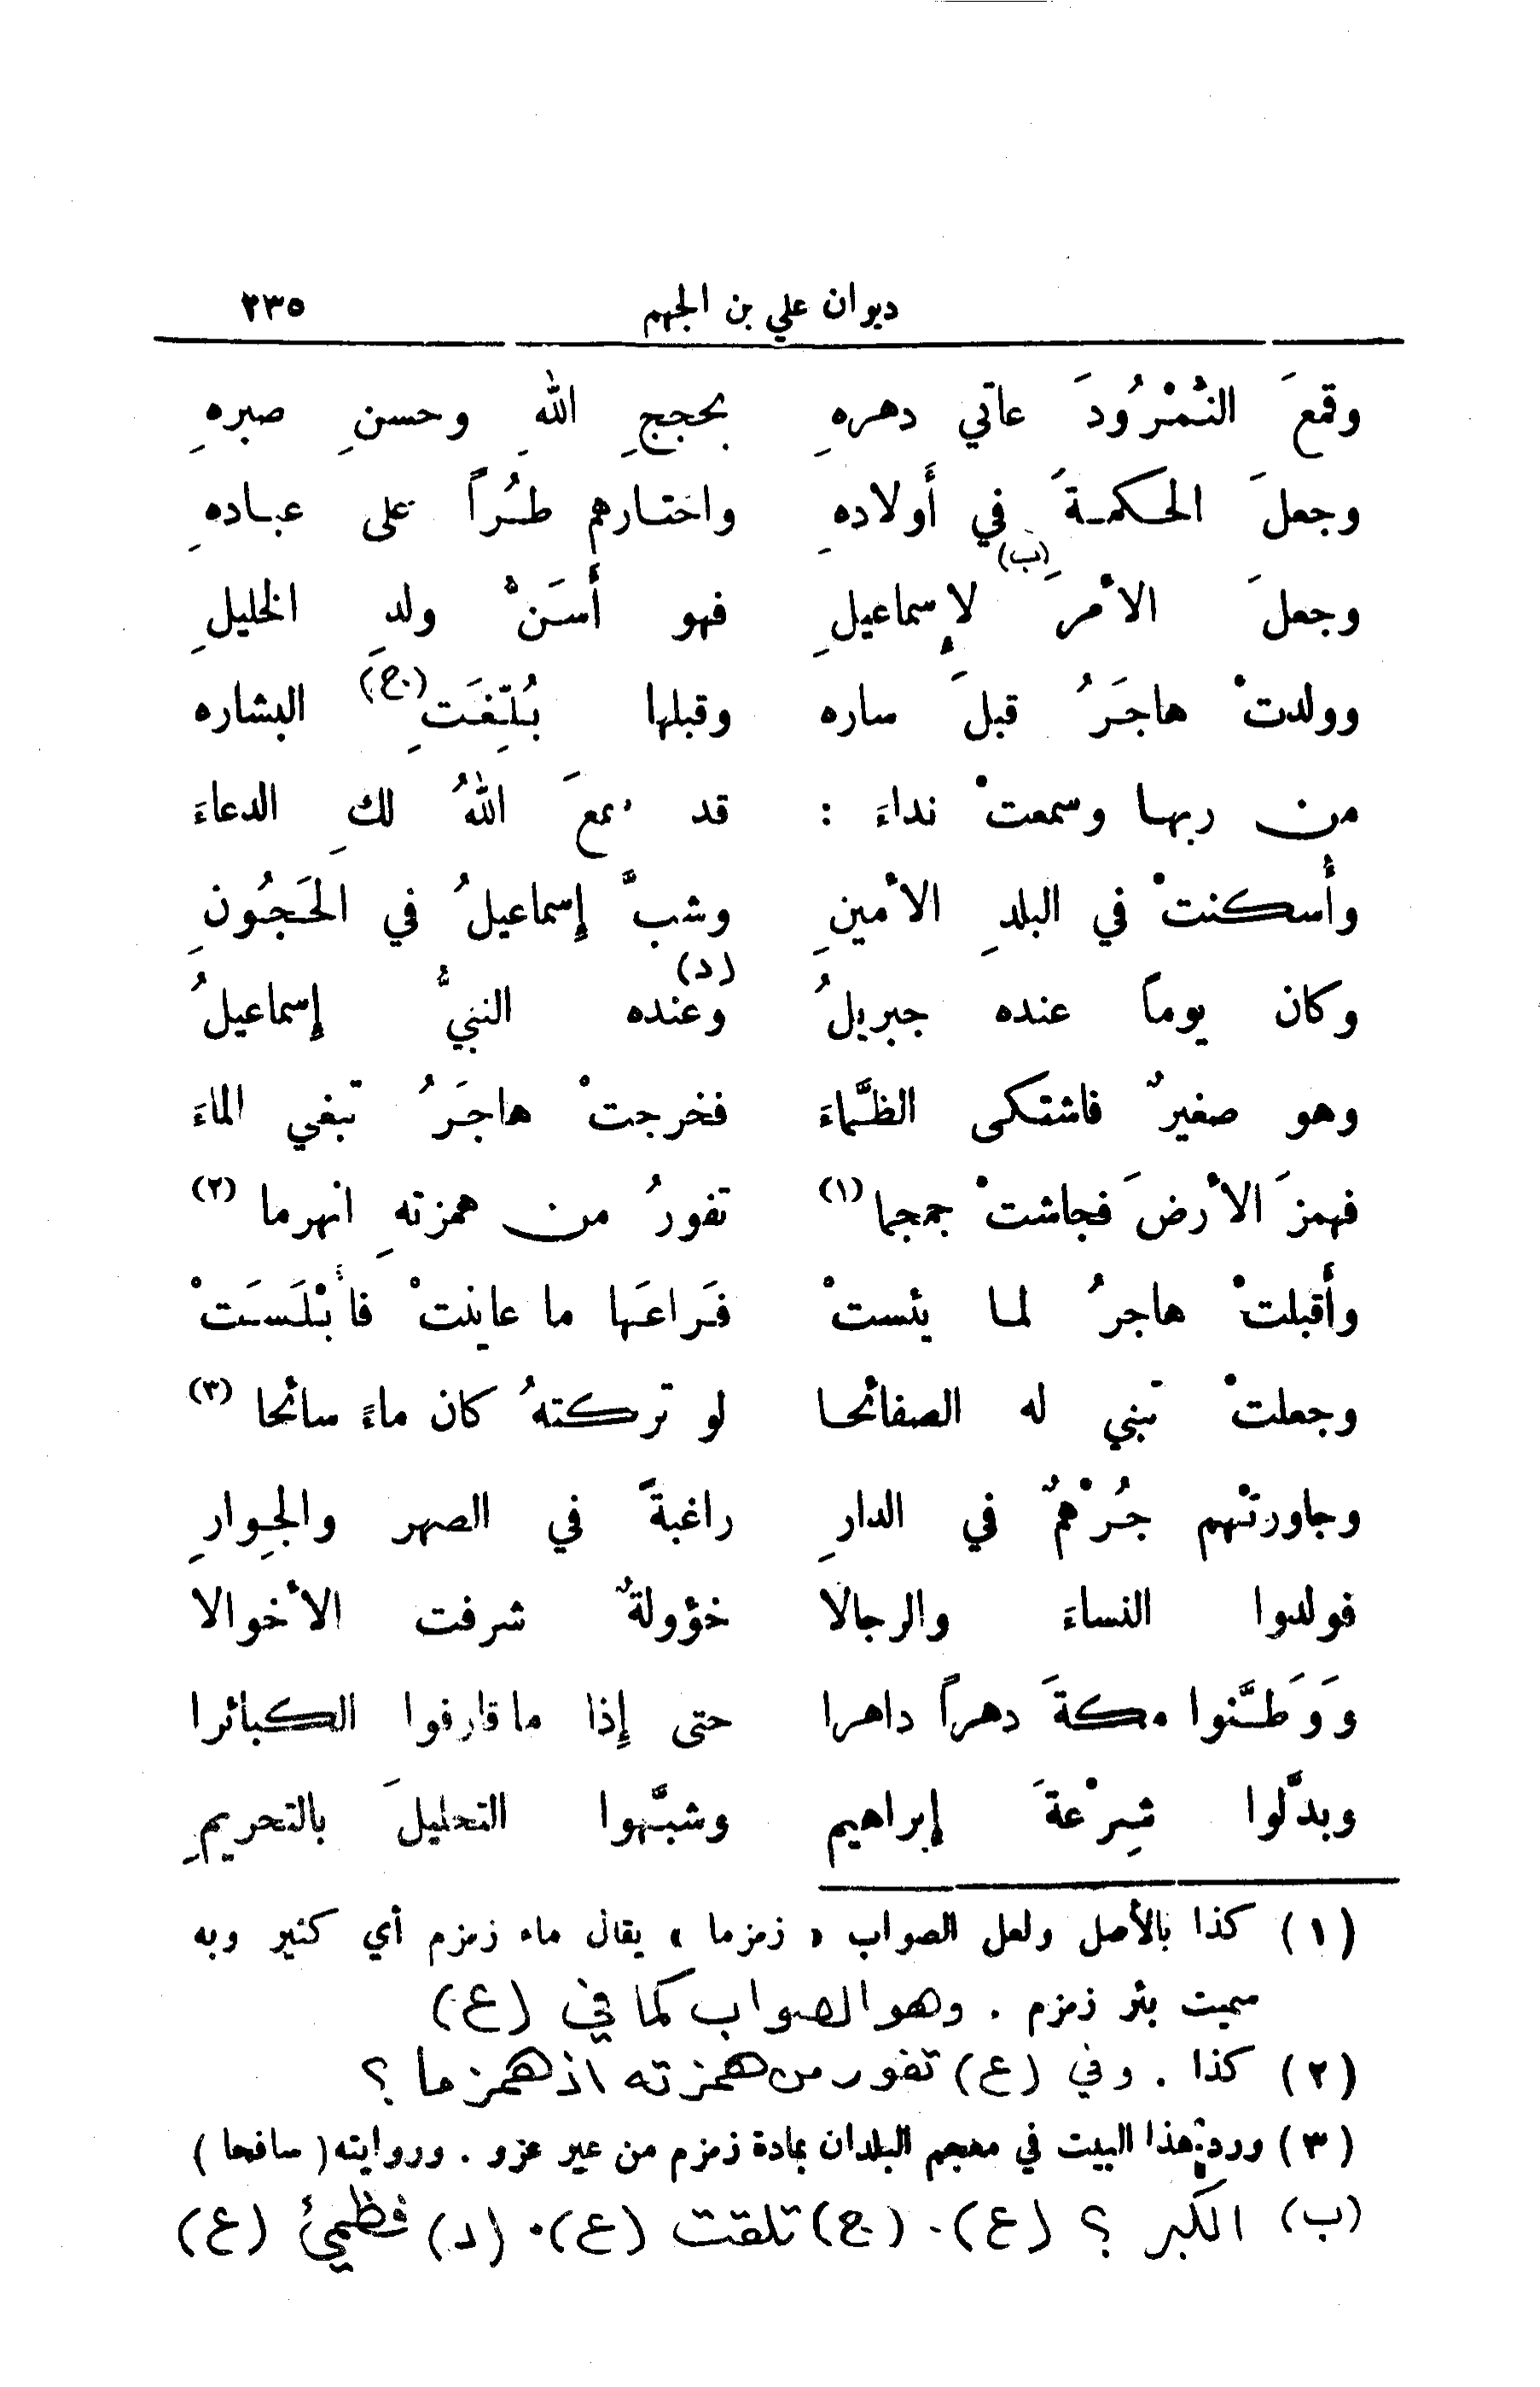 ديوان علي بن الجهم ٢٣٥
وقمعَ النُّمْرُودَ عاتي دهرهِ بحججِ اللهِ وحسنِ صبرهِ
وجعلَ الحكمةَ في أولادهِ واختارهم طُرّاً على عبادهِ
وجعلَ الأمرَ (ب) لإسماعيلِ فهو أَسَنُّ ولدِ الخليلِ
وولدتْ هاجَرُ قبلَ ساره وقبلها بُلِّغَتِ (ج) البشاره
من ربها وسمعتْ نداءَ : قد سمعَ اللهُ لكِ الدعاءَ
وأُسكنتْ في البلدِ الأمينِ وشبَّ إسماعيلُ في الحَجُونِ
وكان يوماً عنده جبريلُ وعنده (د) النبيُّ إسماعيلُ
وهو صغيرٌ فاشتكى الظَّماءَ فخرجتْ هاجَرُ تبغي الماءَ
فهمزَ الأرضَ فجاشتْ جمجما (١) تفورُ من همزتهِ انهرما (٢)
وأَقبلتْ هاجرُ لما يئستْ فَراعَها ما عاينتْ فأَبْلَسَتْ
وجعلتْ تبني له الصفائحا لو تركتهُ كان ماءً سائحا (٣)
وجاورتْهم جُرْهمٌ في الدارِ راغبةً في الصهر والجِوارِ
فولدوا النساءَ والرجالا خؤولةٌ شرفت الأخوالا
وَوَطَّنوا مكةَ دهراً داهرا حتى إذا ما قارفوا الكبائرا
وبدَّلوا شِرْعةَ إبراهيم وشبَّهوا التحليلَ بالتحريمِ
(١) كذا بالأصل ولعل الصواب « زمزما » يقال ماء زمزم أي كثير وبه
سميت بئر زمزم . وهو الصواب كما في (ع)
(٢) كذا . وفي (ع) تفور من همزته اذ همزما ؟
(٣) ورد هذا البيت في معجم البلدان بمادة زمزم من غير عزو . وروايته ( سافحا )
(ب) الكبر ؟ (ع) . (ج) تلقت (ع) . (د) فظمئ (ع)